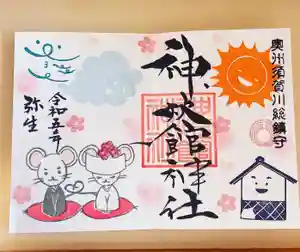 奥州須賀川総鎮守
神炊館神社
令和五年
弥生